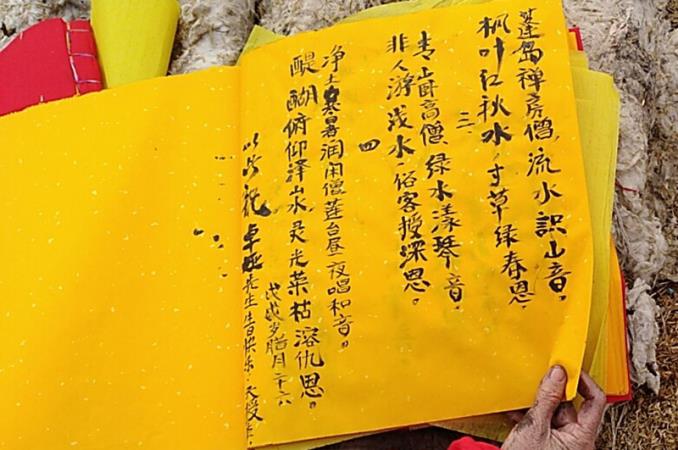 莲岛禅房僧,流水识山音。
枫叶红秋水,寸草绿春恩。
三
青山高僧,绿水漾琴音。
非人游浅水,俗客授深恩。
四
净土寒暑润闲僧,莲台昼夜唱和音。
醍醐俯仰泽山水,灵光荣枯溶仇恩。
戊戌岁腊月二十六
以此祝卓先生生日快乐.天授